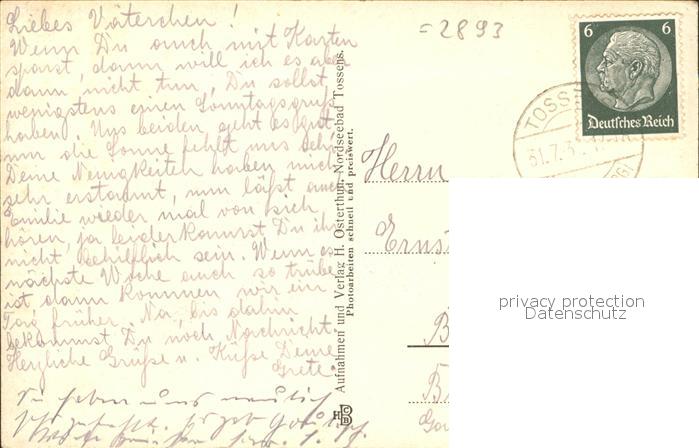 Liebes Väterchen!
Wenn Du auch mit Karten
sparst, dann will ich es aber
dann nicht tun, Du sollst
wenigstens einen Sonntagsgruß
haben. Uns beiden geht es gut
nur die Sonne fehlt uns sehr.
Deine Neuigkeiten haben mich
sehr erstaunt, nun läßt auch
Emilie wieder mal von sich
hören, ja leider kannst Du ihr
nicht behilflich sein. Wenn es
nächste Woche auch so trübe
ist dann kommen wir ein
Tag früher. Na, bis dahin
bekommst Du noch Nachricht.
Herzliche Grüße u. Küsse Deine
Grete.
Aufnahmen und Verlag H. Osterthun, Nordseebad Tossens.
Photoarbeiten schnell und preiswert.
=2893
6 6
Deutsches Reich
TOSS
31.7.3
Herrn
Ernst
B
B
privacy protection
Datenschutz